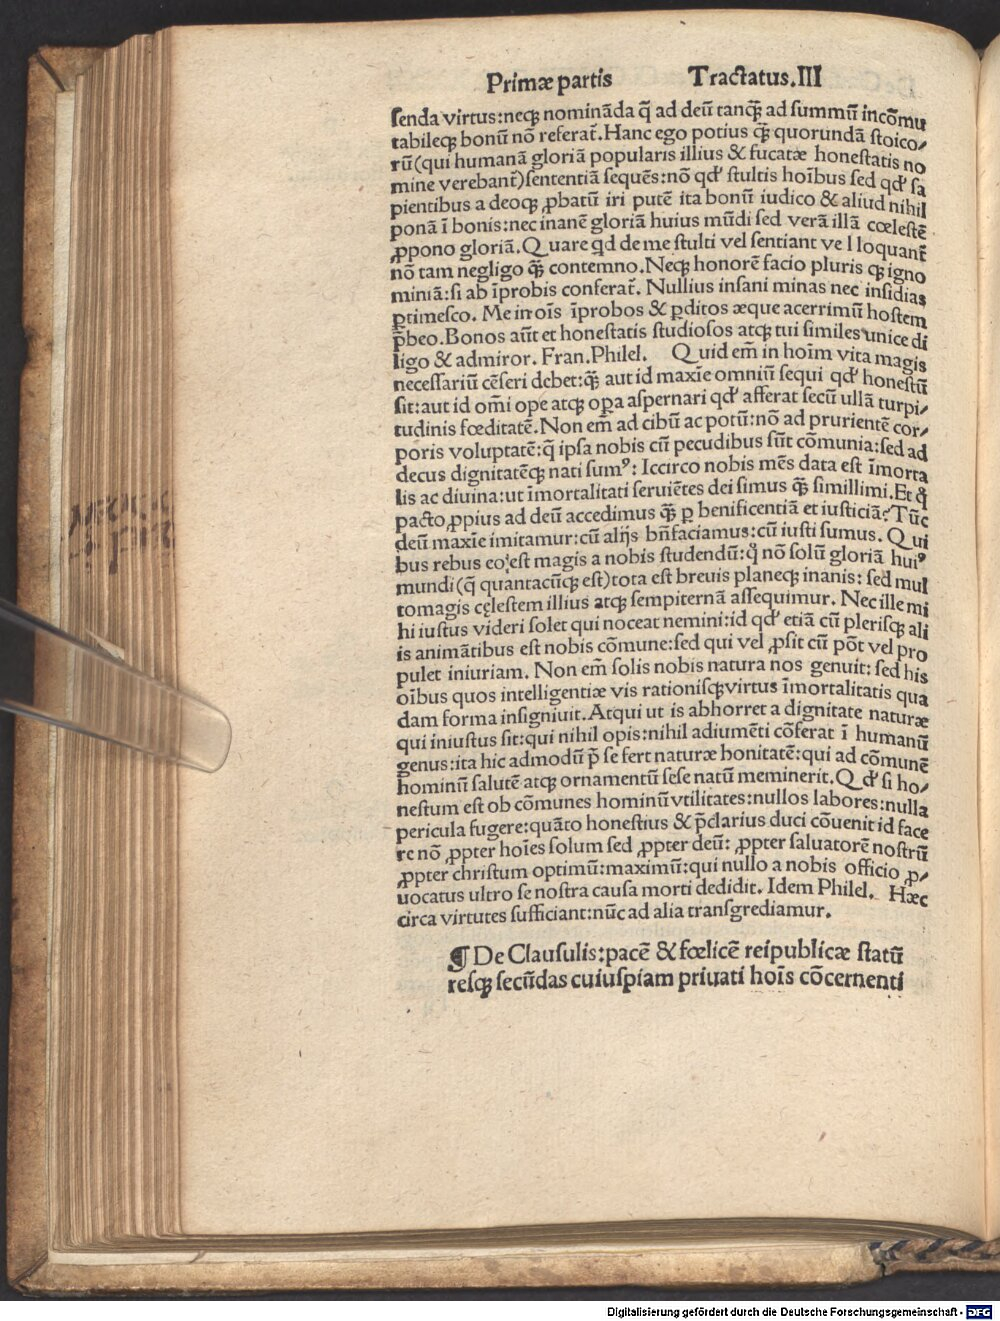 Primæ partis Tractatus.III
senda virtus:neqꝫ nominãda q̃ ad deũ tanqꝫ̃ ad summũ incõmu
tabileqꝫ bonũ nõ referat̃. Hanc ego potius qꝫ̃ quorundã stoico⸗
rũ(qui humanã gloriã popularis illius & fucatæ honestatis no
mine verebant̃)sententiã sequẽs:nõ qđ stultis hoĩbus sed qđ sa
pientibus a deoqꝫ ꝓbatũ iri putẽ ita bonũ iudico & aliud nihil
ponã ĩ bonis:nec inanẽ gloriã huius mũdi sed verã illã cœlestẽ
ꝓpono gloriã.Quare qd de me stulti vel sentiant ve l loquant̃
nõ tam negligo qꝫ̃ contemno. Neqꝫ honorẽ facio pluris qꝫ igno
miniã:si ab ĩprobis conferat̃. Nullius insani minas nec insidias
ꝑtimesco. Me in oĩs ĩprobos & ꝑditos æque acerrimũ hostem
p̃beo. Bonos aũt et honestatis studiosos atqꝫ tui similes unice di
ligo & admiror. Fran.Philel. Quid em̃ in hoĩm vita magis
necessariũ cẽseri debet:qꝫ̃ aut id maxĩe omniũ sequi qđ honestũ
sit:aut id om̃i ope atqꝫ oꝑa aspernari qđ afferat secũ ullã turpi⸗
tudinis fœditatẽ. Non em̃ ad cibũ ac potũ:nõ ad prurientẽ cor⸗
poris voluptatẽ:q̃ ipsa nobis cũ pecudibus sũt cõmunia:sed ad
decus dignitatẽqꝫ nati sumꝰ: Iccirco nobis mẽs data est ĩmorta
lis ac diuina:ut ĩmortalitati seruiẽtes dei simus qꝫ̃ simillimi. Et q̃
pacto ꝓpius ad deũ accedimus qꝫ̃ ꝑ benificentiã et iusticiã? Tũc
deũ maxĩe imitamur:cũ alijs bñfaciamus:cũ iusti sumus. Qui
bus rebus eo est magis a nobis studendũ: nõ solũ gloriã huiꝰ
mundi(q̃ quantacũqꝫ est)tota est breuis planeqꝫ inanis: sed mul
tomagis cęlestem illius atqꝫ sempiternã assequimur. Nec ille mi
hi iustus videri solet qui noceat nemini:id qđ etiã cũ plerisqꝫ ali
is animãtibus est nobis cõmune:sed qui vel ꝓsit cũ põt vel pro
pulet iniuriam. Non em̃ solis nobis natura nos genuit: sed his
oĩbus quos intelligentiæ vis rationisqꝫ virtus ĩmortalitatis qua
dam forma insigniuit. Atqui ut is abhorret a dignitate naturæ
qui iniustus sit:qui nihil opis:nihil adiumẽti cõferat ĩ humanũ
genus:ita hic admodũ p̃ se fert naturæ bonitatẽ:qui ad cõmunẽ
hominũ salutẽ atqꝫ ornamentũ sese natũ meminerit. Qđ si ho⸗
nestum est ob cõmunes hominũ vtilitates:nullos labores:nulla
pericula fugere:quãto honestius & p̃clarius duci cõuenit id face
re nõ ꝓpter hoĩes solum sed ꝓpter deũ: ꝓpter saluatorẽ nostrũ
ꝓpter christum optimũ:maximũ:qui nullo a nobis officio ꝓ⸗
uocatus ultro se nostra causa morti dedidit. Idem Philel. Hæc
circa virtutes sufficiant:nũc ad alia transgrediamur.
¶ De Clausulis:pacẽ & fœlicẽ reipublicæ statũ
resqꝫ secũdas cuiuspiam priuati hoĩs cõcernenti
Digitalisierung gefördert durch die Deutsche Forschungsgemeinschaft - DFG